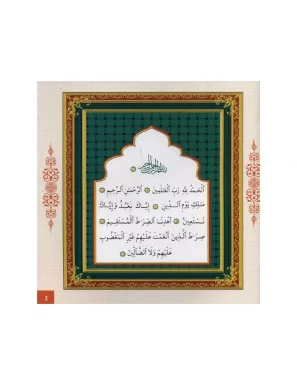 بسم الله الرحمن الرحيم
الْحَمْدُ لِلَّهِ رَبِّ الْعَالَمِينَ ۝ الرَّحْمَنِ الرَّحِيمِ ۝
مَالِكِ يَوْمِ الدِّينِ ۝ إِيَّاكَ نَعْبُدُ وَإِيَّاكَ
نَسْتَعِينُ ۝ اهْدِنَا الصِّرَاطَ الْمُسْتَقِيمَ ۝
صِرَاطَ الَّذِينَ أَنْعَمْتَ عَلَيْهِمْ غَيْرِ الْمَغْضُوبِ
عَلَيْهِمْ وَلَا الضَّالِّينَ ۝
3